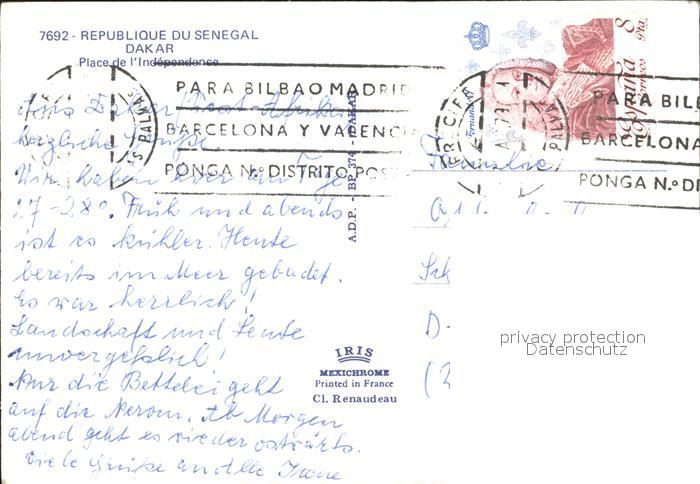 7692 - REPUBLIQUE DU SENEGAL
DAKAR
Place de l'Indépendance
PARA BILBAO, MADRID
BARCELONA Y VALENCI
PONGA N.º DISTRITO POST
S PALMAS
PARA BIL
BARCELONA
PONGA N.º DI
España
8 Pta
Aus Dakar West-Afrika
herzliche Grüße
Wir haben hier am Tage
27-28°. Früh und abends
ist es kühler. Heute
bereits im Meer gebadet.
Es war herrlich!
Landschaft und Leute
unvergeßlich!
Nur die Bettelei geht
auf die Nerven. Ab Morgen
abend geht es wieder ostwärts.
Viele Grüße an Alle Irene
A.D.P. - BP 374 - DAKAR
Familie
D-
IRIS
MEXICHROME
Printed in France
Cl. Renaudeau
privacy protection
Datenschutz